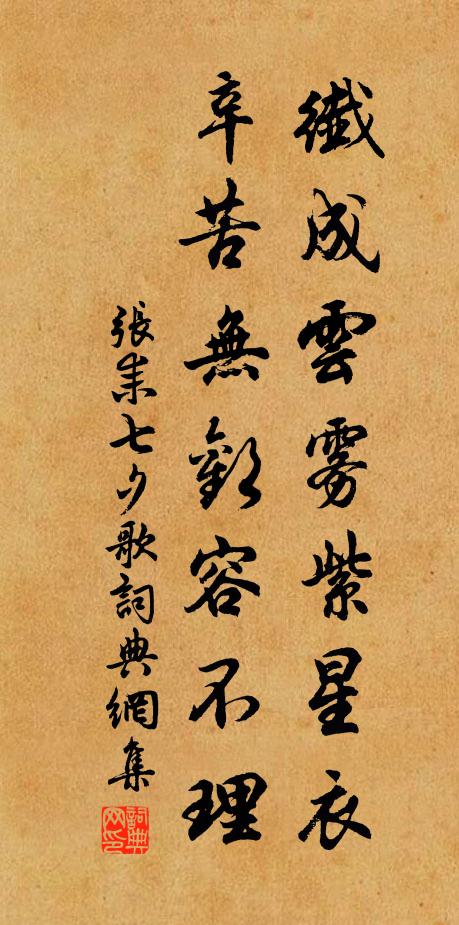 織成雲霧紫星衣
辛苦無歡容不理
張耒七夕歌詞典網集
詞典
网印